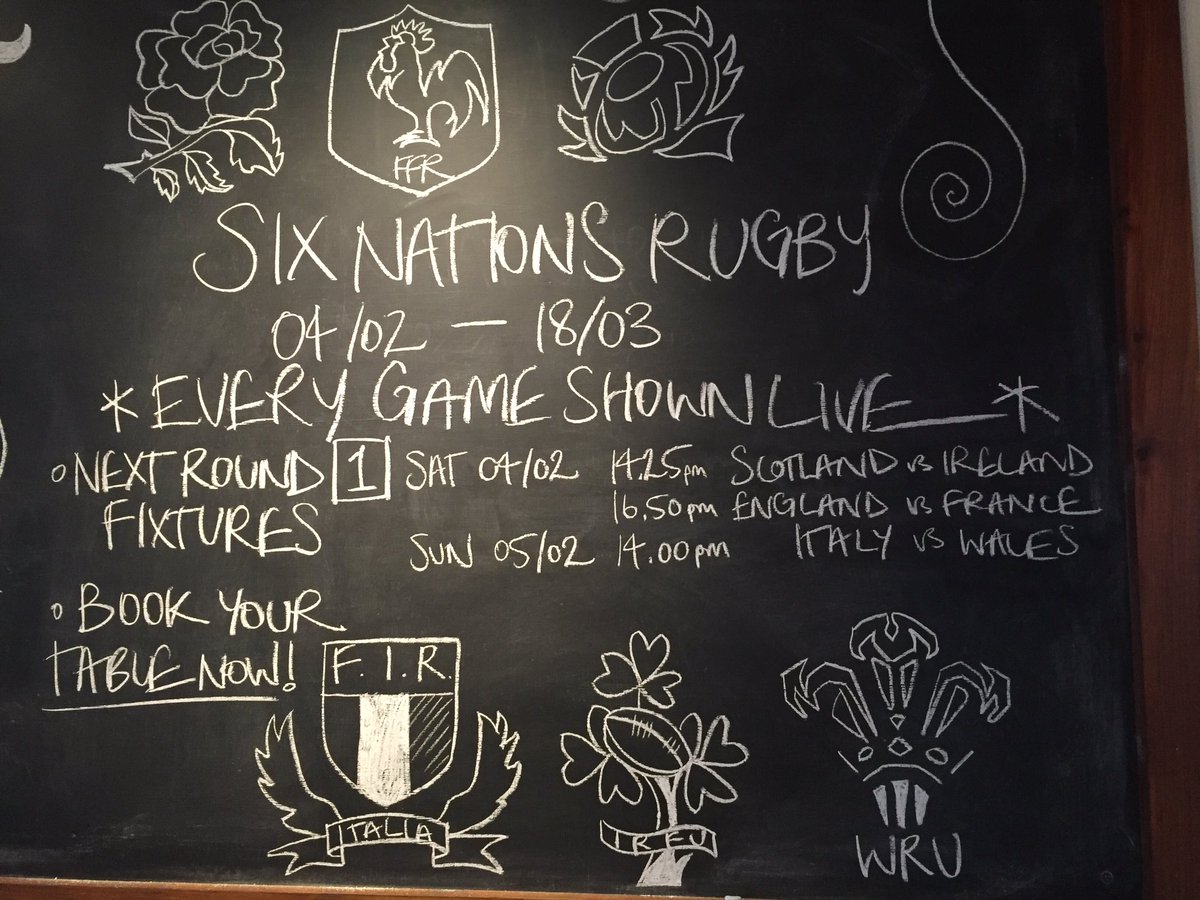 FFR
SIX NATIONS RUGBY
04/02 — 18/03
* EVERY GAME SHOWN LIVE *
NEXT ROUND 1 SAT 04/02 14.25pm SCOTLAND vs IRELAND
16.50pm ENGLAND vs FRANCE
FIXTURES
SUN 05/02 14.00pm ITALY vs WALES
BOOK YOUR
TABLE NOW!
F.I.R.
ITALIA
IRFU
WRU